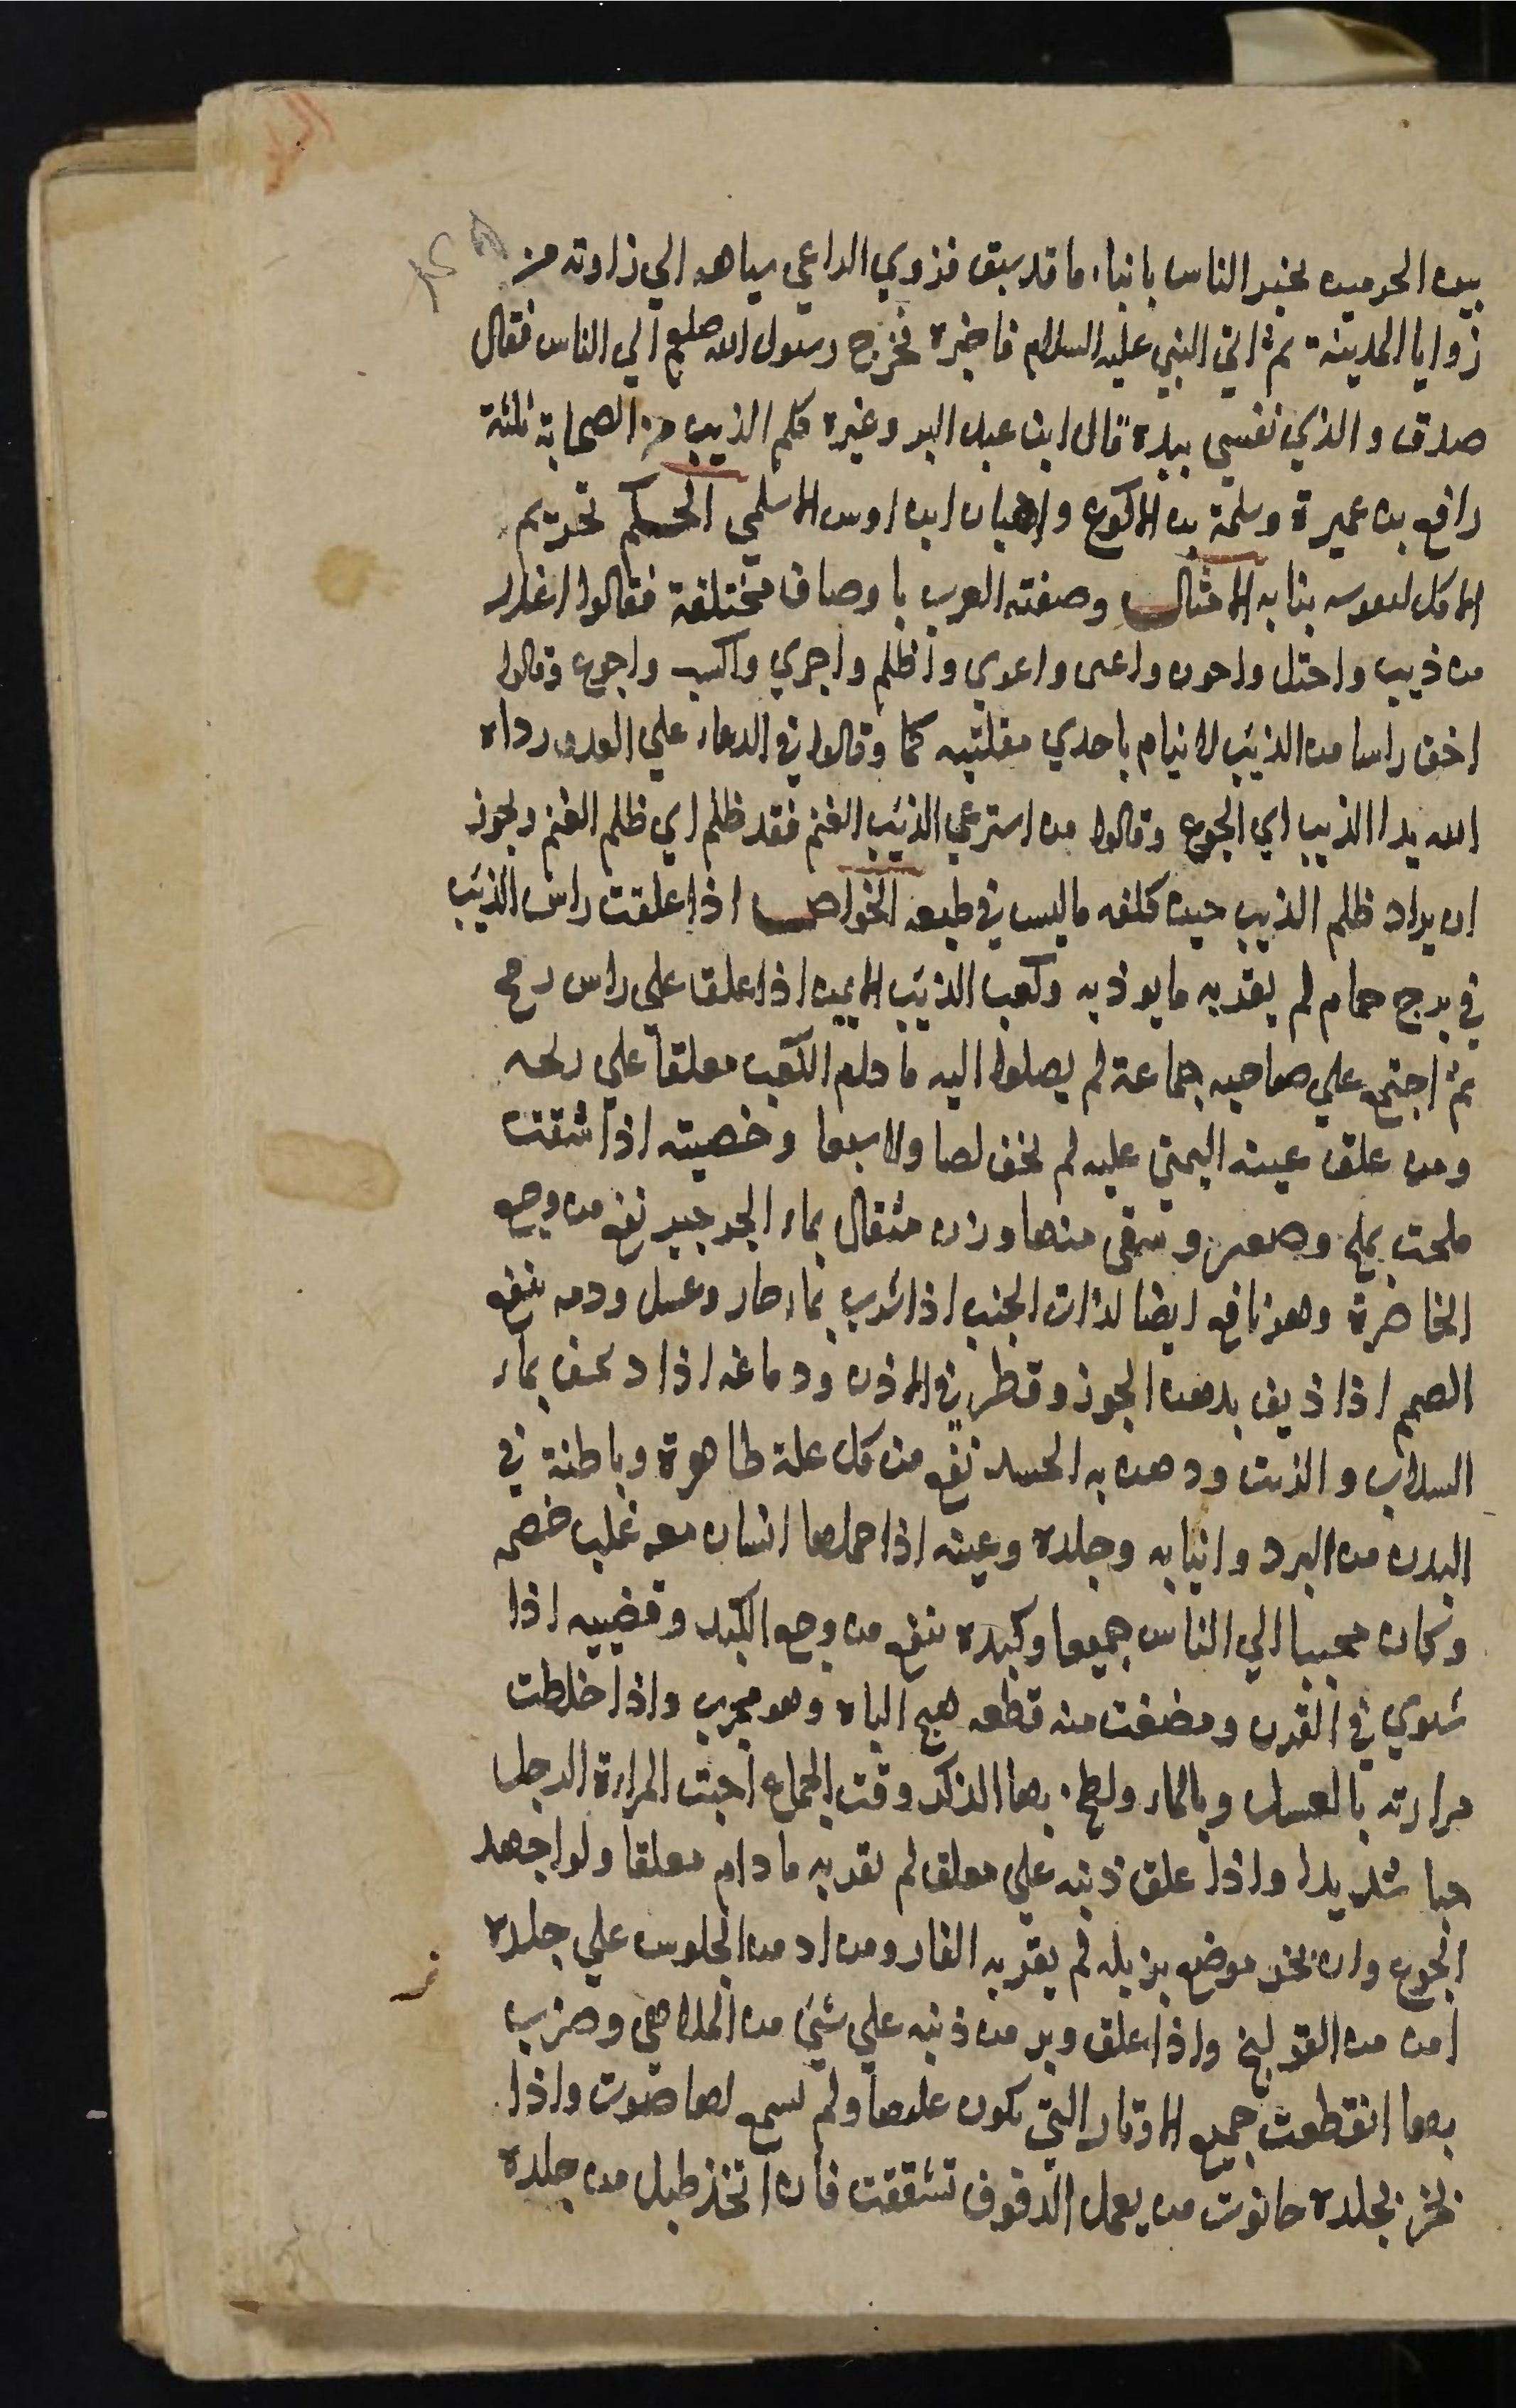 بين الحرمين يخبر الناس بانباء ما قد سبق فزوي الراعي شياهه الي زاوية من
زوايا المدينة ثم اتي النبي عليه السلام فاخبره فخرج رسول الله صلعم الي الناس فقال
صدق والذي نفسي بيده قال ابن عبد البر وغيره كلم الذيب من الصحابة ثلثة
رافع بن عميرة وسلمة بن الاكوع واهبان ابن اوس الاسلمي الحكم تحريم
الاكل لتقويه بنابه الامثال وصفته العرب باوصاف مختلفة فقالوا اغدر
من ذيب واختل واخون واعتى واعوي واظلم واجري واكسب واجوع وقالوا
اخف راسا من الذيب لانه ينام باحدي مقلتيه كما وقالوا في الدعاء علي العدو رماه
الله بدا الذيب اي الجوع وقالوا من استرعي الذئب الغنم فقد ظلم اي ظلم الغنم ويجوز
ان يراد ظلم الذيب حين كلفه ما ليس في طبعه الخواص اذا علقت راس الذئب
في برج حمام لم يقربه ما يوذيه وكعب الذئب الايمن اذا علق علي راس رمح
ثم اجتمع علي صاحبه جماعة لم يصلوا اليه ما دام الكعب معلقا علي رمحه
ومن علق عينه اليمني عليه لم يخف لصا ولا سبعا وخصيته اذا شقت
ملحت بملح وصعتر وسقى منها وزن مثقال بماء الجرجير نفع من وجع
الخاصرة وهو نافع ايضا لذات الجنب اذا شرب بماء حار وعسل ودمه ينفع
الصمم اذا ذيف بدهن الجوز وقطر في الاذن ودماغه اذا ديف بماء
السداب والزيت ودهن به الجسد نفع من كل علة ظاهرة وباطنة في
البدن من البرد وانيابه وجلده وعينه اذا حملها انسان معه غلب خصمه
وكان محببا الي الناس جميعا وكبده ينفع من وجع الكبد وقضيبه اذا
شوي في الفرن ومضغت منه قطعه هيج الباه وهو مجرب واذا خلطت
مرارته بالعسل وبالماء ولطخ بها الذكر وقت الجماع احبت المراة الرجل
حبا شديدا واذا علق ذنبه علي معلف لم يقربه ما دام معلقا ولو اجهد
الجوع وان بخر موضع بزبله لم يقربه الفار ومن ادمن الجلوس علي جلده
امن من القولنج واذا علق وبر من ذنبه علي شيء من الملاهي وضرب
بها انقطعت جميع الاوتار التي يكون عليها ولم يسمع لها صوت واذا
بخر بجلده حانوت من يعمل الدفوف تشققت فان اتخذ طبل من جلده